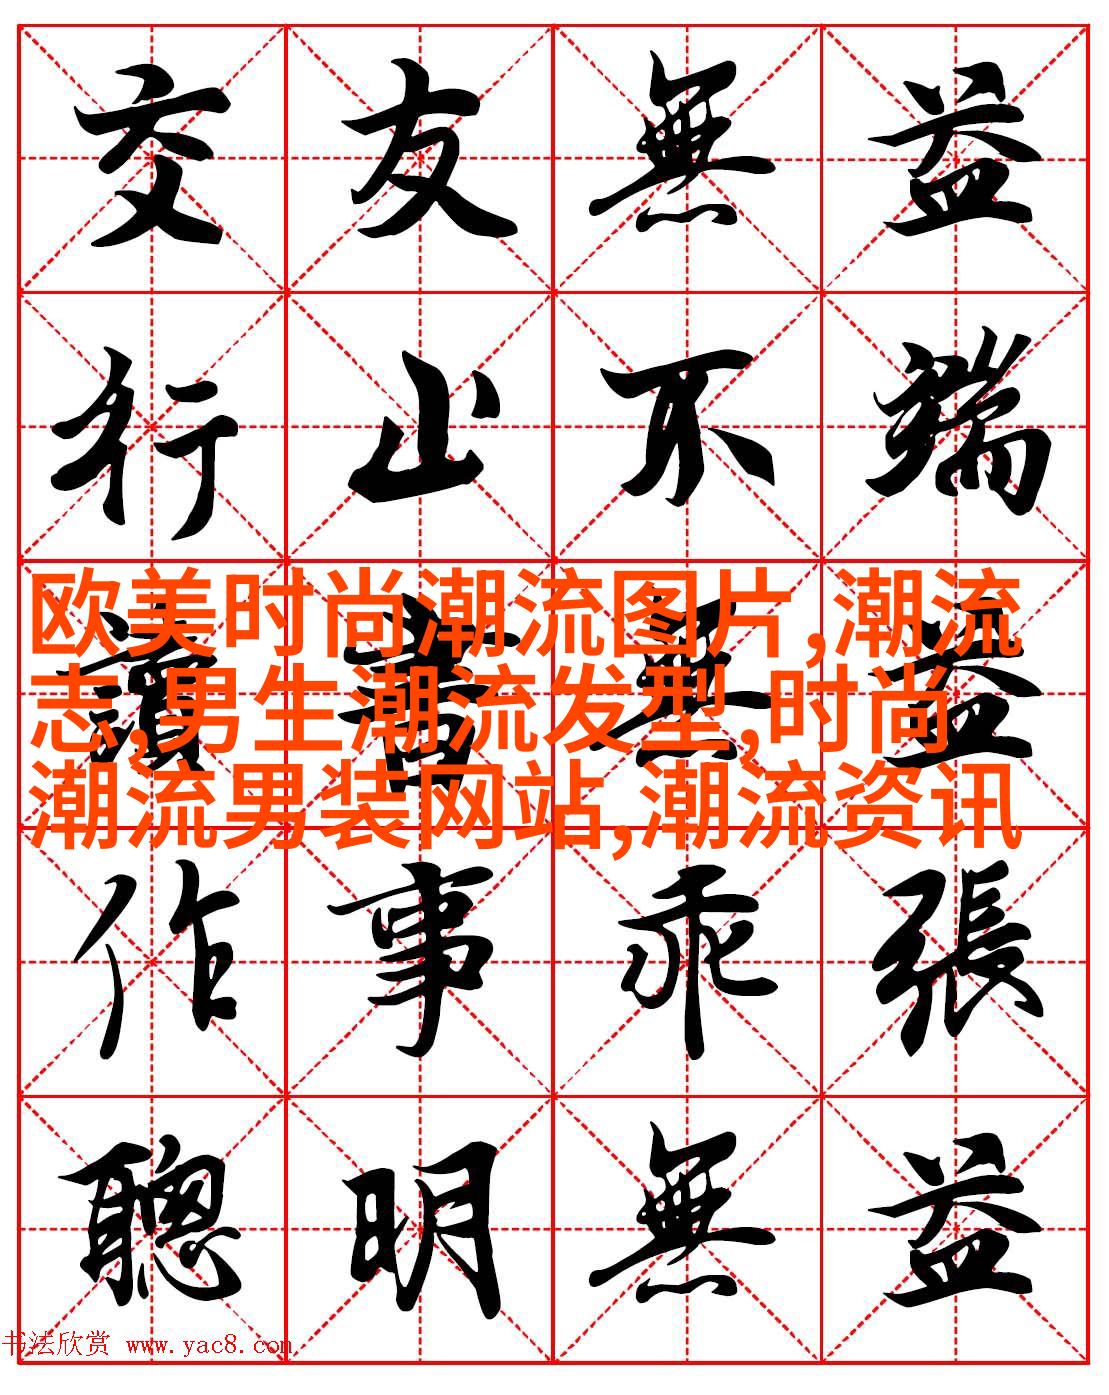 交友無益
行止不端
讀書無益
欧美时尚潮流图片,潮流
志,男生潮流发型,时尚
潮流男装网站,潮流资讯
作事乖張
聰明無益
书法欣赏 www.yac8.com